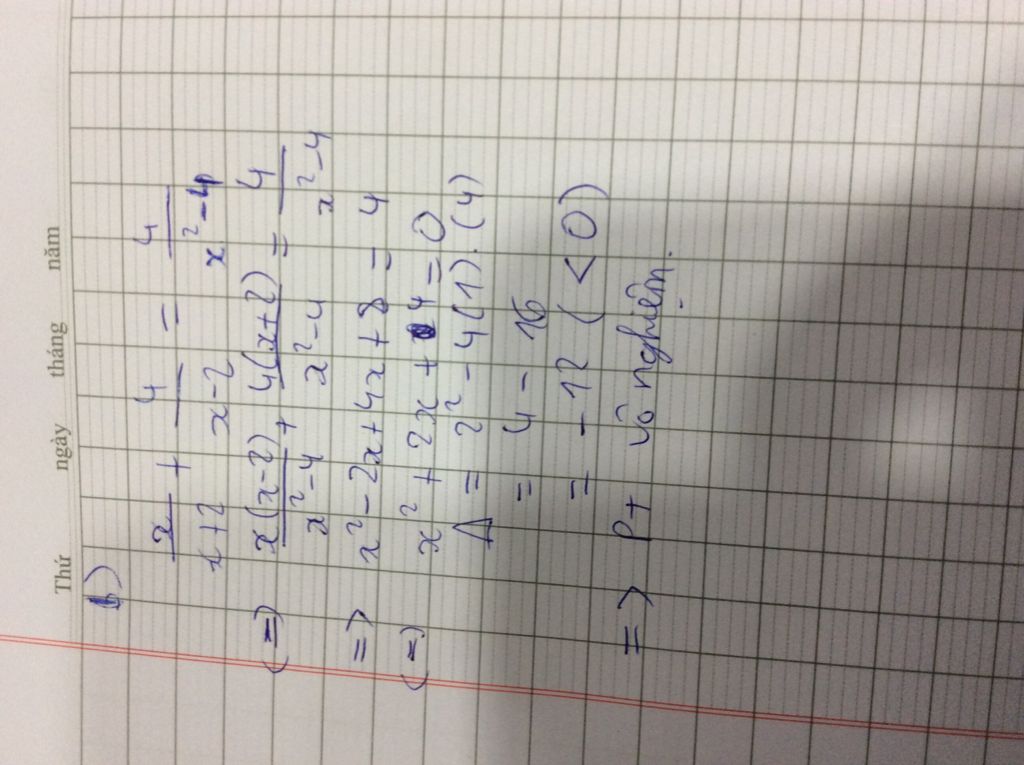 Thứ ngày tháng năm
b)
x/(x+2) + 4/(x-2) = 4/(x²-4)
(=) x(x-2)/(x²-4) + 4(x+2)/(x²-4) = 4/(x²-4)
=> x² - 2x + 4x + 8 = 4
(=) x² + 2x + 4 = 0
Δ = 2² - 4(1).(4)
= 4 - 16
= -12 (<0)
=> Pt vô nghiệm.